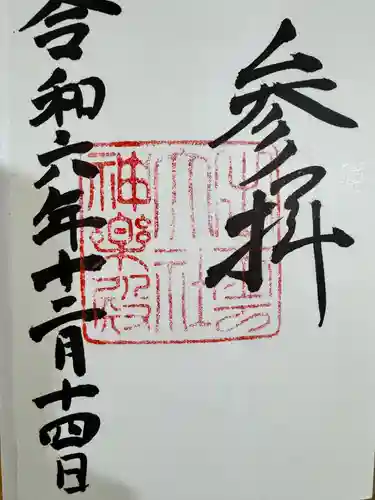 参拝
出雲
大社
神楽殿
令和六年十二月十四日